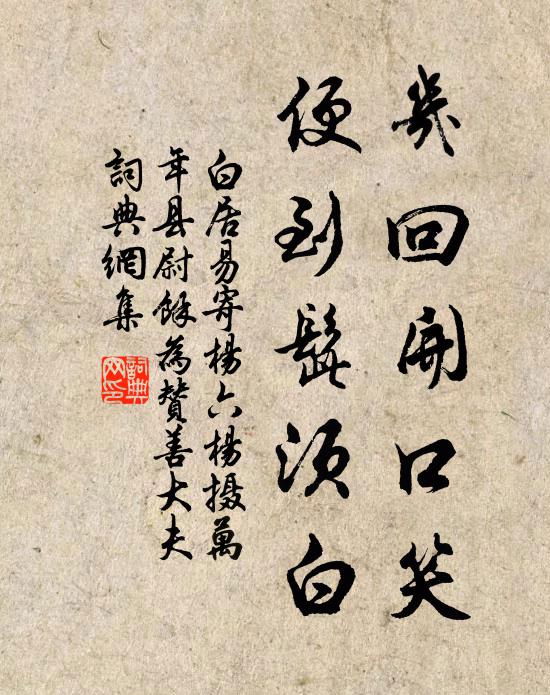 幾回開口笑
便到髭须白
白居易寄楊六楊摄萬
年县尉餘為贊善大夫
詞典網集
詞典网印